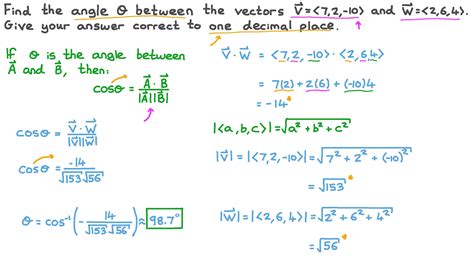 Find the angle θ between the vectors V⃗=<7,2,-10> and W⃗=<2,6,4>.
Give your answer correct to one decimal place.
If θ is the angle between
A⃗ and B⃗, then:
cosθ = A⃗ · B⃗ / |A⃗||B⃗|
cosθ = V⃗ · W⃗ / |V⃗||W⃗|
cosθ = -14 / √153 √56
θ = cos⁻¹(- 14 / √153 √56) ≈ 98.7°
V⃗ · W⃗ = <7,2,-10> · <2,6,4>
= 7(2) + 2(6) + (-10)4
= -14
|<a,b,c>| = √a² + b² + c²
|V⃗| = |<7,2,-10>| = √7² + 2² + (-10)²
= √153
|W⃗| = |<2,6,4>| = √2² + 6² + 4²
= √56